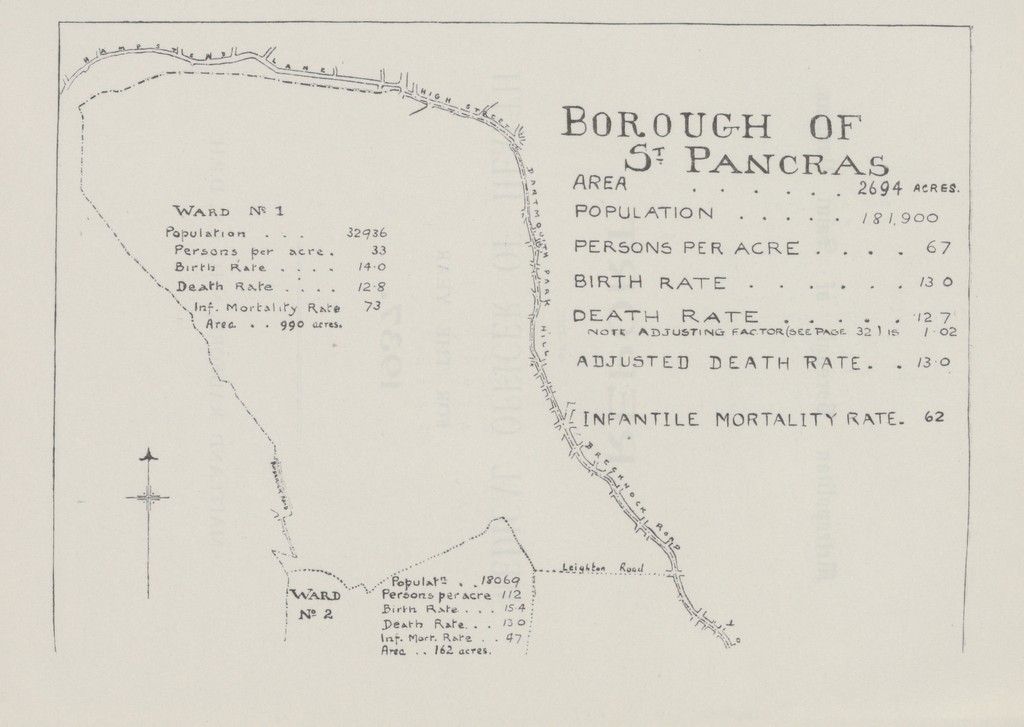 HAMPSTEAD LANE
HIGH STREET
DARTMOUTH PARK HILL
BRECKNOCK ROAD
BOROUGH OF
ST PANCRAS
AREA . . . . . . 2694 ACRES.
POPULATION . . . . . 181,900
PERSONS PER ACRE . . . . 67
BIRTH RATE . . . . . . . 13·0
DEATH RATE . . . . . 12·7
NOTE ADJUSTING FACTOR (SEE PAGE 32) IS 1·02
ADJUSTED DEATH RATE . . 13·0
INFANTILE MORTALITY RATE. 62
WARD No 1
Population . . . 32936
Persons per acre . 33
Birth Rate . . . . 14·0
Death Rate . . . . 12·8
Inf. Mortality Rate 73
Area . . 990 acres.
Leighton Road
WARD
No 2
Populatn . . 18069
Persons per acre 112
Birth Rate . . . 15·4
Death Rate . . . 13·0
Inf. Mort. Rate . . 47
Area . . 162 acres.